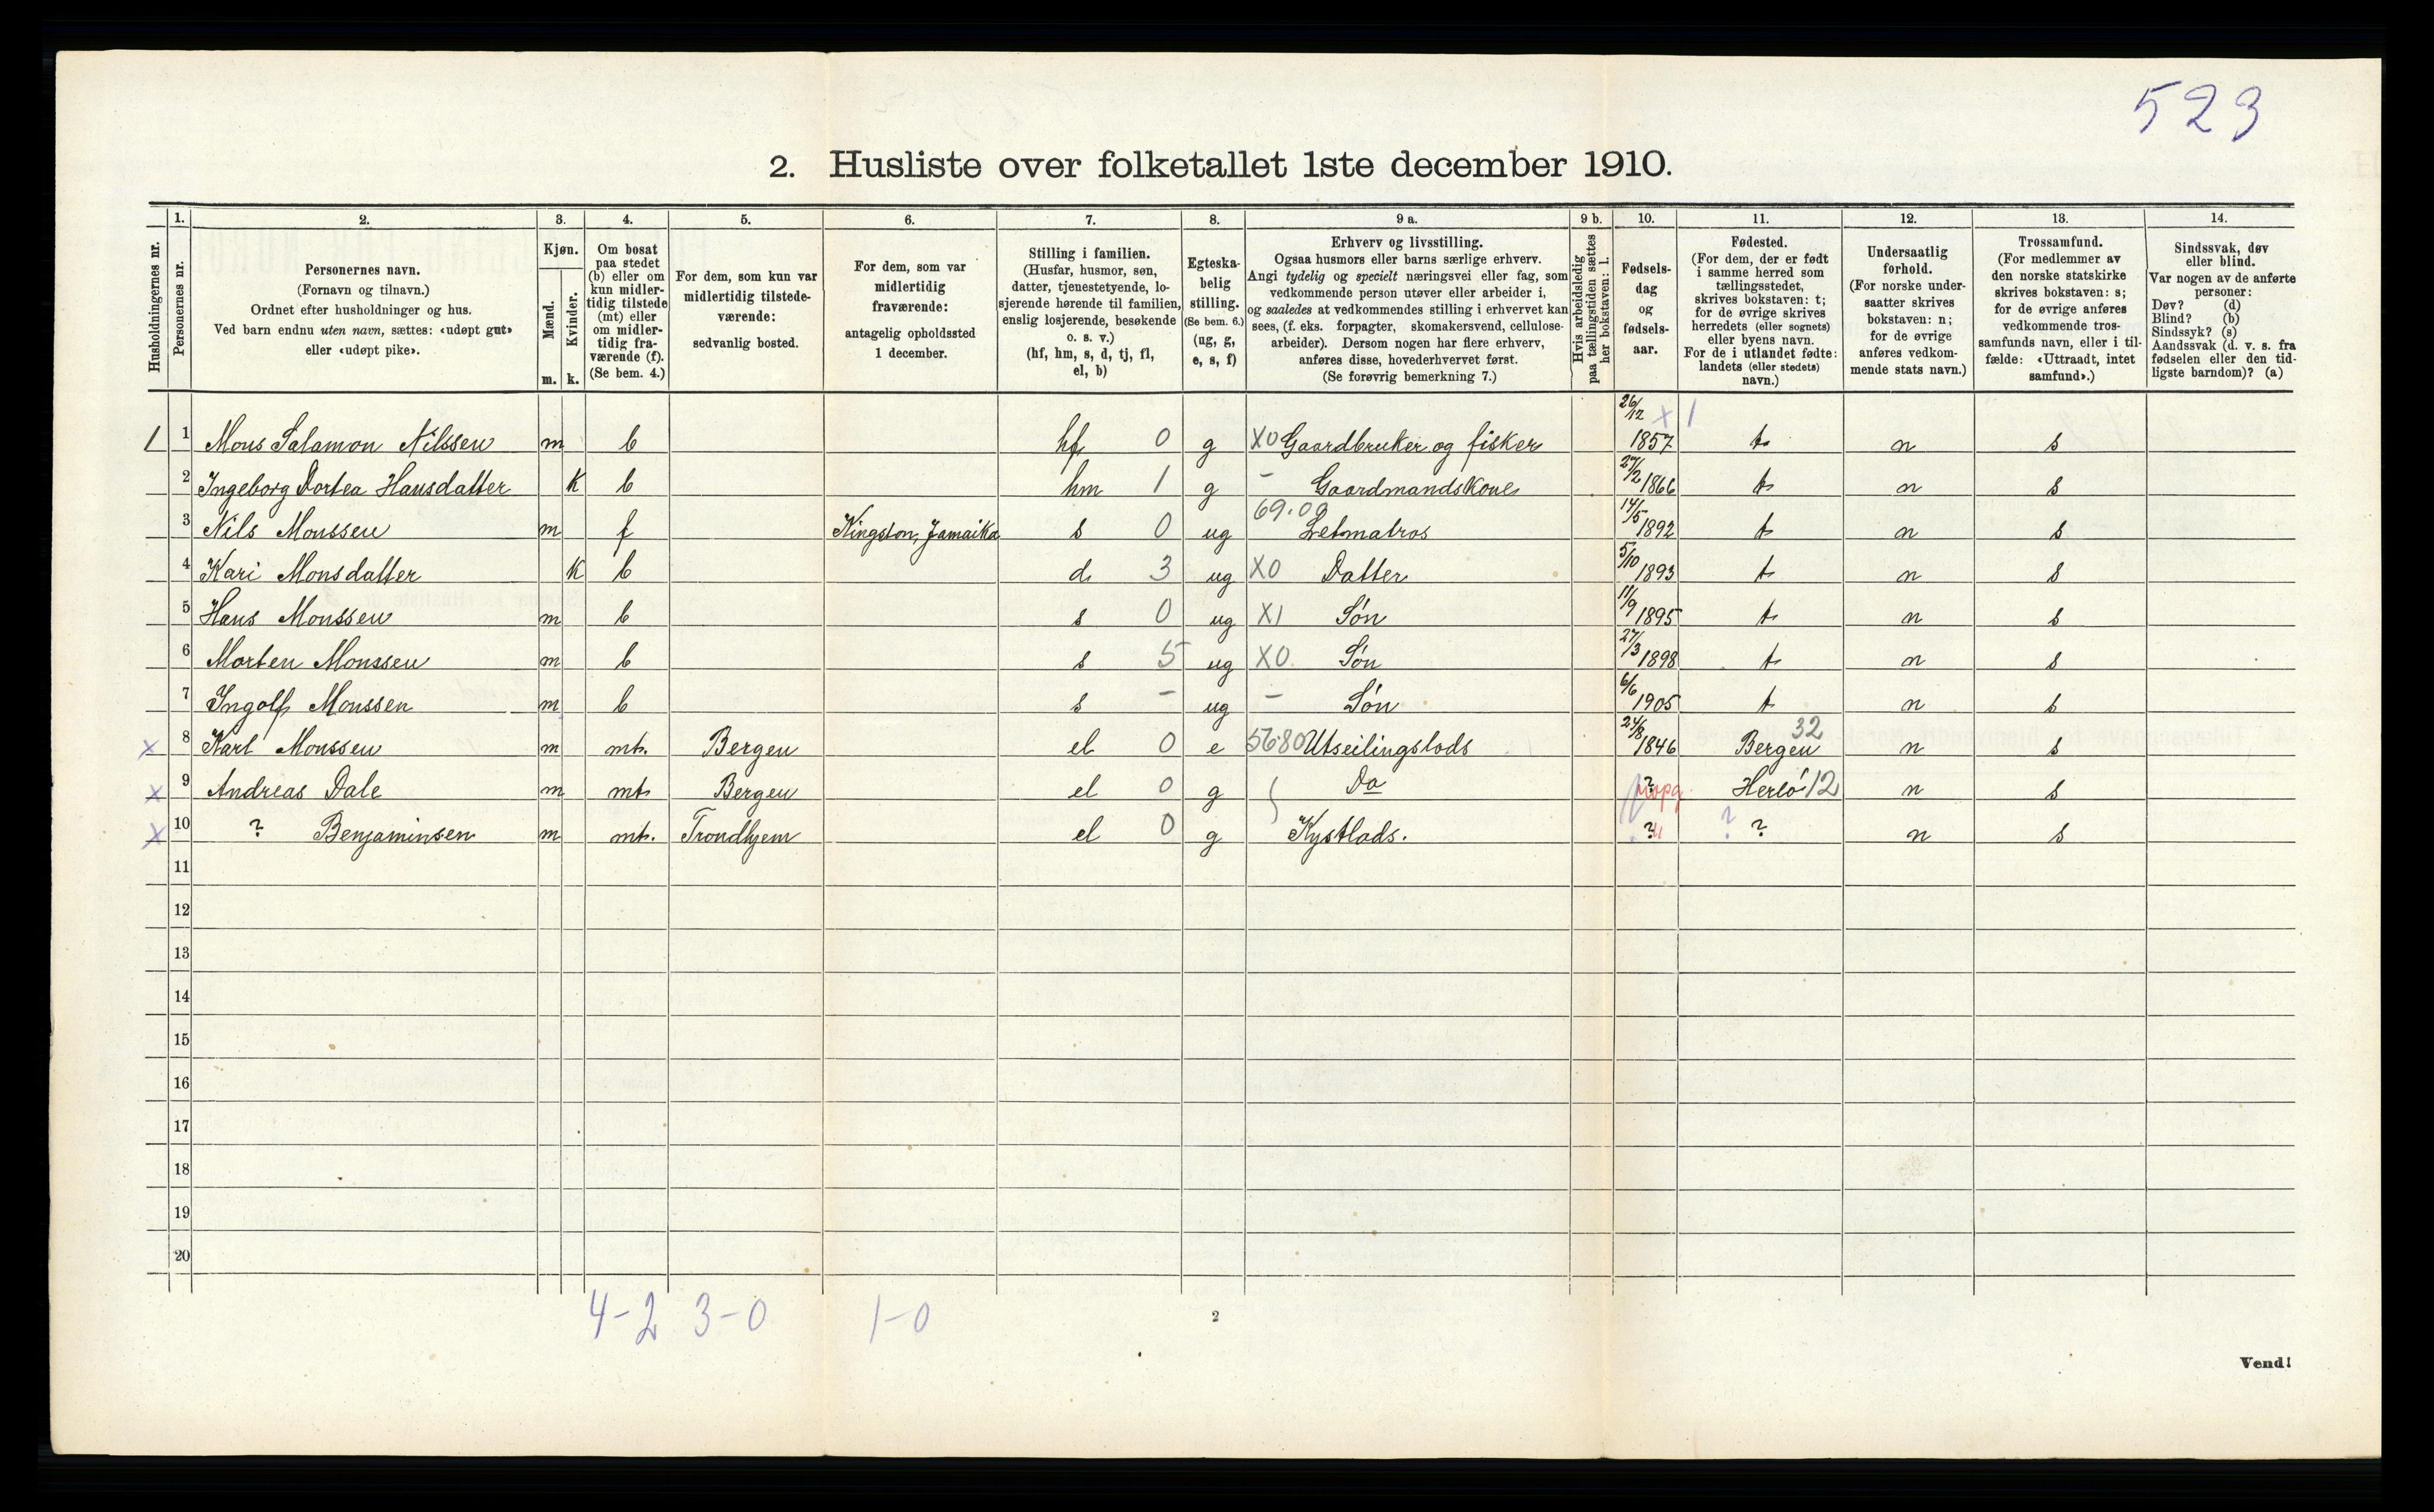 523
2. Husliste over folketallet 1ste december 1910.
Husholdningernes nr.
1. Personernes nr.
2. Personernes navn.
(Fornavn og tilnavn.)
Ordnet efter husholdninger og hus.
Ved barn endnu uten navn, sættes: «udøpt gut»
eller «udøpt pike».
3. Kjøn.
Mænd. Kvinder.
m. k.
4. Om bosat
paa stedet
(b) eller om
kun midler-
tidig tilstede
(mt) eller
om midler-
tidig fra-
værende (f).
(Se bem. 4.)
5. For dem, som kun var
midlertidig tilstede-
værende:
sedvanlig bosted.
6. For dem, som var
midlertidig
fraværende:
antagelig opholdssted
1 december.
7. Stilling i familien.
(Husfar, husmor, søn,
datter, tjenestetyende, lo-
sjerende hørende til familien,
enslig losjerende, besøkende
o. s. v.)
(hf, hm, s, d, tj, fl,
el, b)
8. Egteska-
belig
stilling.
(Se bem. 6.)
(ug, g,
e, s, f)
9 a. Erhverv og livsstilling.
Ogsaa husmors eller barns særlige erhverv.
Angi tydelig og specielt næringsvei eller fag, som
vedkommende person utøver eller arbeider i,
og saaledes at vedkommendes stilling i erhvervet kan
sees, (f. eks. forpagter, skomakersvend, cellulose-
arbeider). Dersom nogen har flere erhverv,
anføres disse, hovederhvervet først.
(Se forøvrig bemerkning 7.)
9 b. Hvis arbeidsledig
paa tællingstiden sættes
her bokstaven: l.
10. Fødsels-
dag
og
fødsels-
aar.
11. Fødested.
(For dem, der er født
i samme herred som
tællingsstedet,
skrives bokstaven: t;
for de øvrige skrives
herredets (eller sognets)
eller byens navn.
For de i utlandet fødte:
landets (eller stedets)
navn.)
12. Undersaatlig
forhold.
(For norske under-
saatter skrives
bokstaven: n;
for de øvrige
anføres vedkom-
mende stats navn.)
13. Trossamfund.
(For medlemmer av
den norske statskirke
skrives bokstaven: s;
for de øvrige anføres
vedkommende tros-
samfunds navn, eller i til-
fælde: «Uttraadt, intet
samfund».)
14. Sindssvak, døv
eller blind.
Var nogen av de anførte
personer:
Døv? (d)
Blind? (b)
Sindssyk? (s)
Aandssvak (d. v. s. fra
fødselen eller den tid-
ligste barndom)? (a)
1 1 Mons Salamon Nilssen m b hf 0 g X0 Gaardbruker og fisker 26/12 1857 x 1 t n s
2 Ingeborg Dortea Hansdatter k b hm 1 g – Gaardmandskone 27/2 1866 t n s
3 Nils Monssen m f Kingston, Jamaika s 0 ug 69.09 Letmatros 14/5 1892 t n s
4 Kari Monsdatter k b d 3 ug X0 Datter 5/10 1893 t n s
5 Hans Monssen m b s 0 ug X1 Søn 11/9 1895 t n s
6 Morten Monssen m b s 5 ug X0 Søn 27/3 1898 t n s
7 Ingolf Monssen m b s – ug – Søn 6/6 1905 t n s
x 8 Karl Monssen m mt. Bergen el 0 e 5680 Utseilingslods 24/8 1846 Bergen 32 n s
x 9 Andreas Dale m mt Bergen el 0 g Do ? Herlö 12 n s
x 10 ? Benjaminsen m mt. Trondhjem el 0 g Kystlods. ? ? ? n s
11
12
13
14
15
16
17
18
19
20
4-2 3-0 1-0
2
Vend!